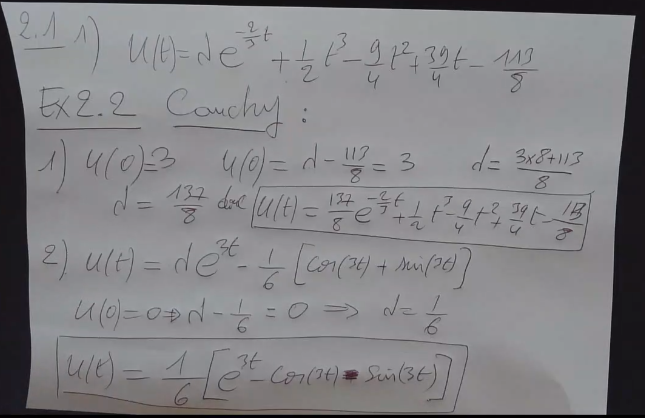 2.1 1) U(t) = d e^{-2/3 t} + 1/2 t^3 - 9/4 t^2 + 39/4 t - 113/8
Ex 2.2 Cauchy :
1) U(0)=3 U(0) = d - 113/8 = 3 d = 3x8+113/8
d = 137/8 donc U(t) = 137/8 e^{-2/3 t} + 1/2 t^3 - 9/4 t^2 + 39/4 t - 113/8
2) U(t) = d e^{3t} - 1/6 [cos(3t) + sin(3t)]
U(0)=0 => d - 1/6 = 0 => d = 1/6
U(t) = 1/6 [e^{3t} - cos(3t) - sin(3t)]